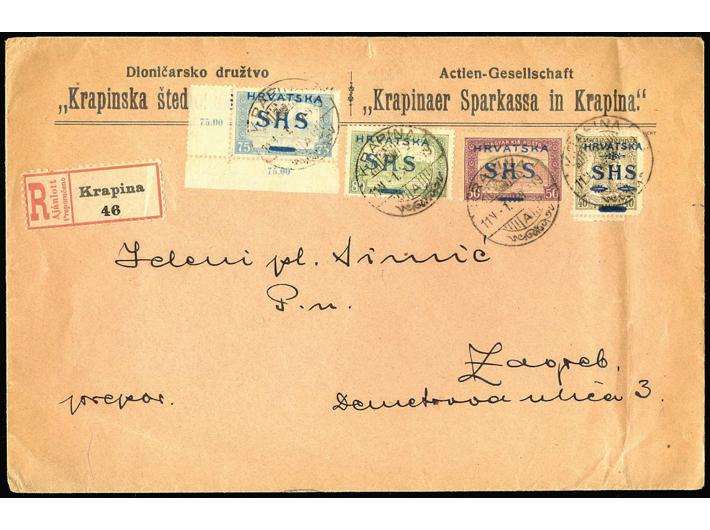 Dioničarsko družtvo
„Krapinska šted
Actien-Gesellschaft
„Krapinaer Sparkassa in Krapina.“
75.00
75.00
HRVATSKA
SHS
75
HRVATSKA
SHS
HRVATSKA
SHS
50 50
HRVATSKA
SHS
40
KRAPINA
R
Ajánlott
Preporučeno
Krapina
46
Jeleni pl. Simić
P. n.
Zagreb.
prepor.
Demetrova ulica 3.